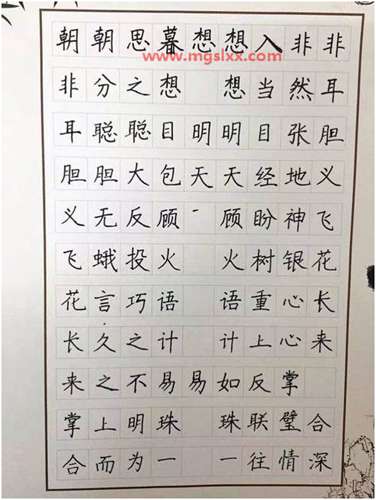 朝朝思暮想想入非非
www.mgslxx.com
非分之想 想当然耳
耳聪聪目明明目张胆
胆胆大包天天经地义
义无反顾 顾盼神飞
飞蛾投火 火树银花
花言巧语 语重心长
长久之计 计上心来
来之不易易如反掌
掌上明珠 珠联璧合
合而为一 一往情深